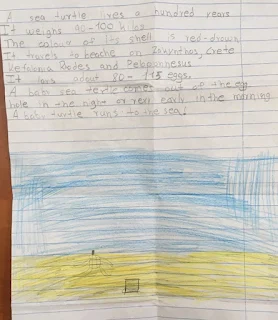 A sea turtle lives a hundred years
It weighs 90-100 kilos
The colour of its shell is red-brown
It travels to beache on Zakynthos, Crete
Kefalonia Rodes and Peloponnesus
It lays about 80- 115 eggs.
A baby sea tertle comes out of the egg
hole in the night or very early in the morning
A baby turtle runs to the sea!